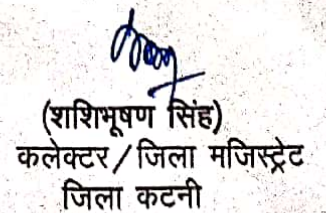 (शशिभूषण सिंह)
कलेक्टर/जिला मजिस्ट्रेट
जिला कटनी